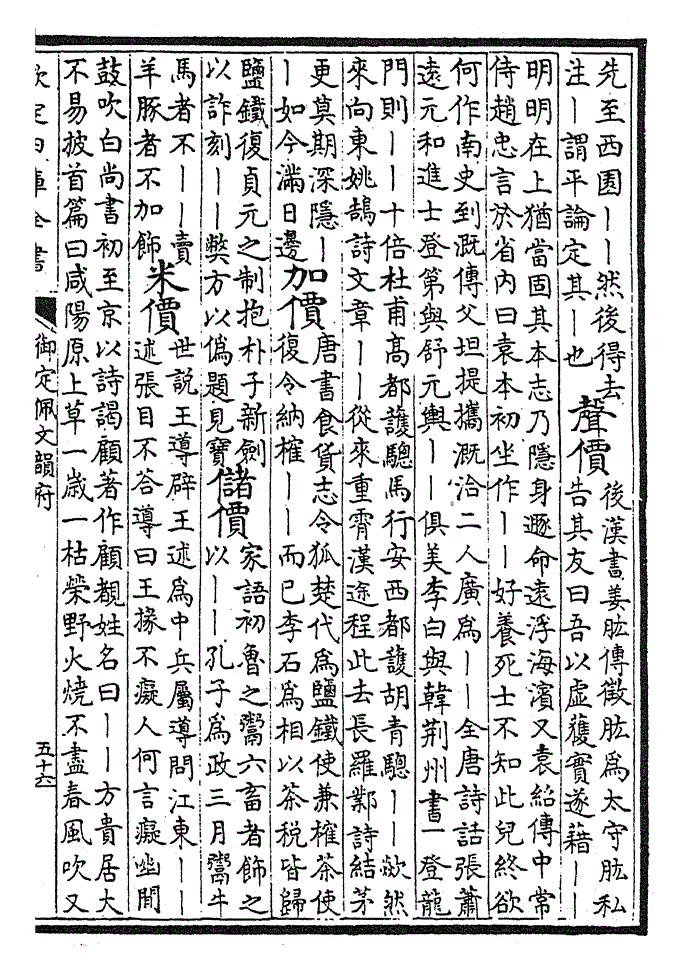 先至西園｜｜然後得去
注｜謂平論定其｜也
聲價
後漢書姜肱傳徵肱為太守肱私
告其友曰吾以虛獲實遂藉｜｜
明明在上猶當固其本志乃隱身遯命遠浮海濱又袁紹傳中常
侍趙忠言於省內曰袁本初坐作｜｜好養死士不知此兒終欲
何作南史到溉傳父坦提攜溉洽二人廣為｜｜全唐詩話張蕭
遠元和進士登第與舒元輿｜｜俱美李白與韓荆州書一登龍
門則｜｜十倍杜甫高都護驄馬行安西都護胡青驄｜｜歘然
來向東姚鵠詩文章｜｜從來重霄漢途程此去長羅鄴詩結茅
更莫期深隱｜
｜如今滿日邊
加價
唐書食貨志令狐楚代為鹽鐵使兼榷茶使
復令納榷｜｜而已李石為相以茶稅皆歸
鹽鐵復貞元之制抱朴子新劍
以詐刻｜｜獘方以偽題見寶
儲價
家語初魯之鬻六畜者飾之
以｜｜孔子為政三月鬻牛
馬者不｜｜賣
羊豚者不加飾
米價
世說王導辟王述為中兵屬導問江東｜｜
述張目不答導曰王掾不癡人何言癡幽閒
鼓吹白尚書初至京以詩謁顧著作顧覩姓名曰｜｜方貴居大
不易披首篇曰咸陽原上草一歲一枯榮野火燒不盡春風吹又
欽定四庫全書
御定佩文韻府
五十六